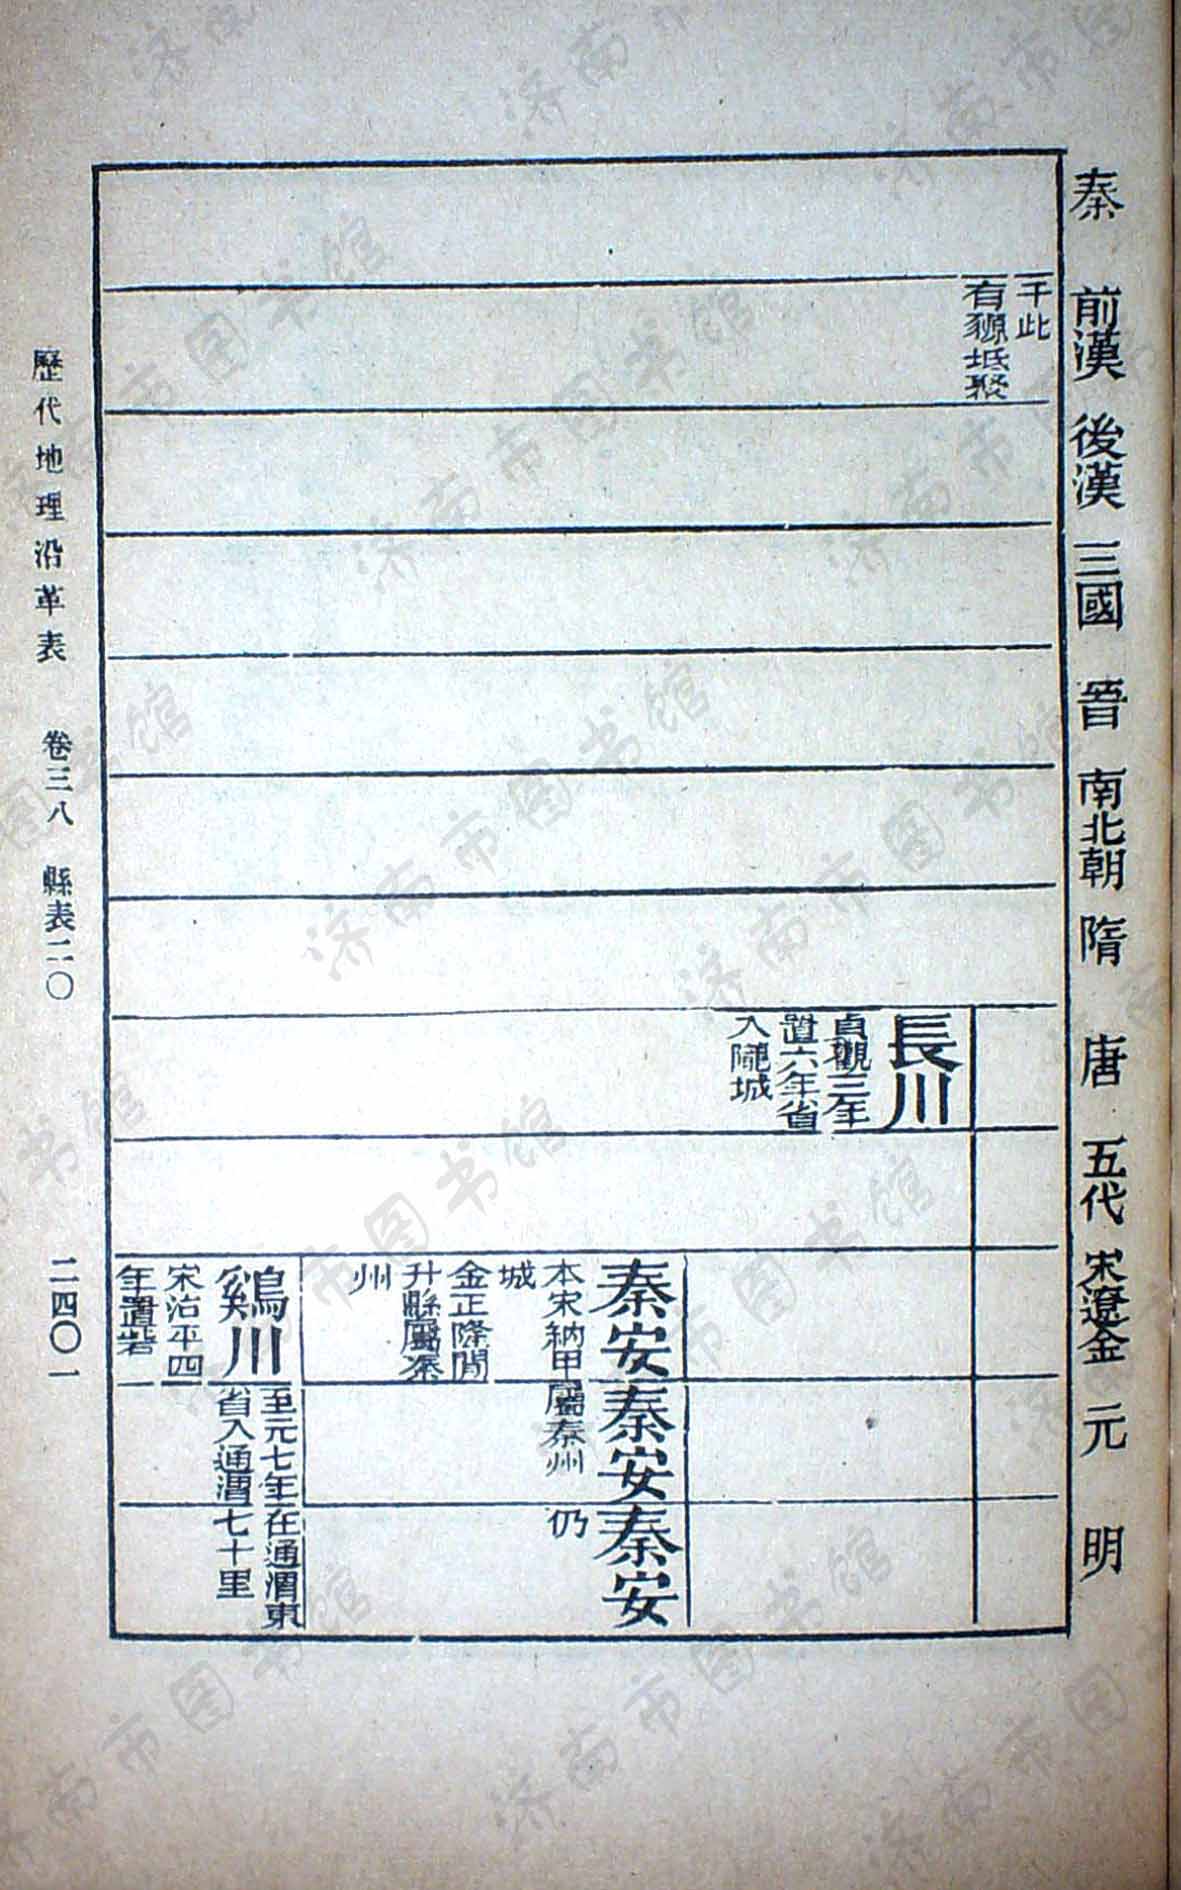 秦
前漢
後漢
三國
晉
南北朝
隋
唐
五代
宋遼金
元
明
于此
有豲坻聚
長川
貞觀三年
置六年省
入隴城
秦安
本宋納甲
城
金正隆間
升縣屬秦
州
秦安
屬秦州
秦安
仍
鷄川
宋治平四
年置砦
至元七年
省入通渭
在通渭東
七十里
歷代地理沿革表 卷三八 縣表二〇 二四〇一
济南市图书馆